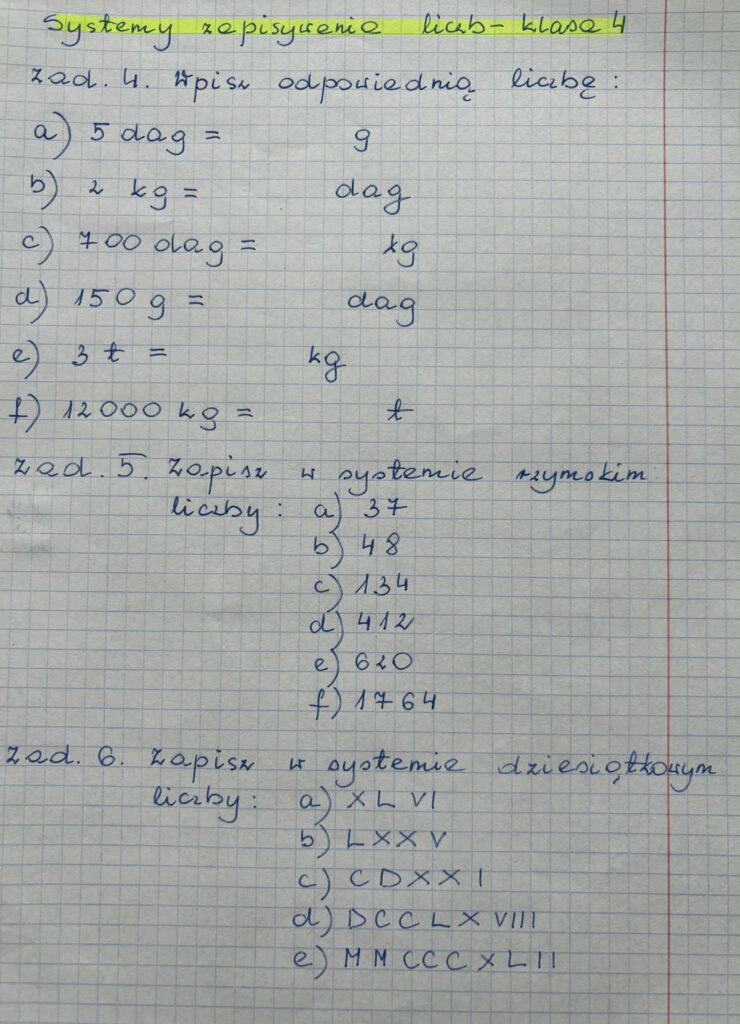 Systemy zapisywania liczb - klasa 4
zad. 4. Wpisz odpowiednią liczbę :
a) 5 dag = g
b) 2 kg = dag
c) 700 dag = kg
d) 150 g = dag
e) 3 t = kg
f) 12000 kg = t
zad. 5. Zapisz w systemie rzymskim
liczby : a) 37
b) 48
c) 134
d) 412
e) 620
f) 1764
zad. 6. Zapisz w systemie dziesiątkowym
liczby : a) XLVI
b) LXXV
c) CDXXI
d) DCCLXVIII
e) MMCCCXLII